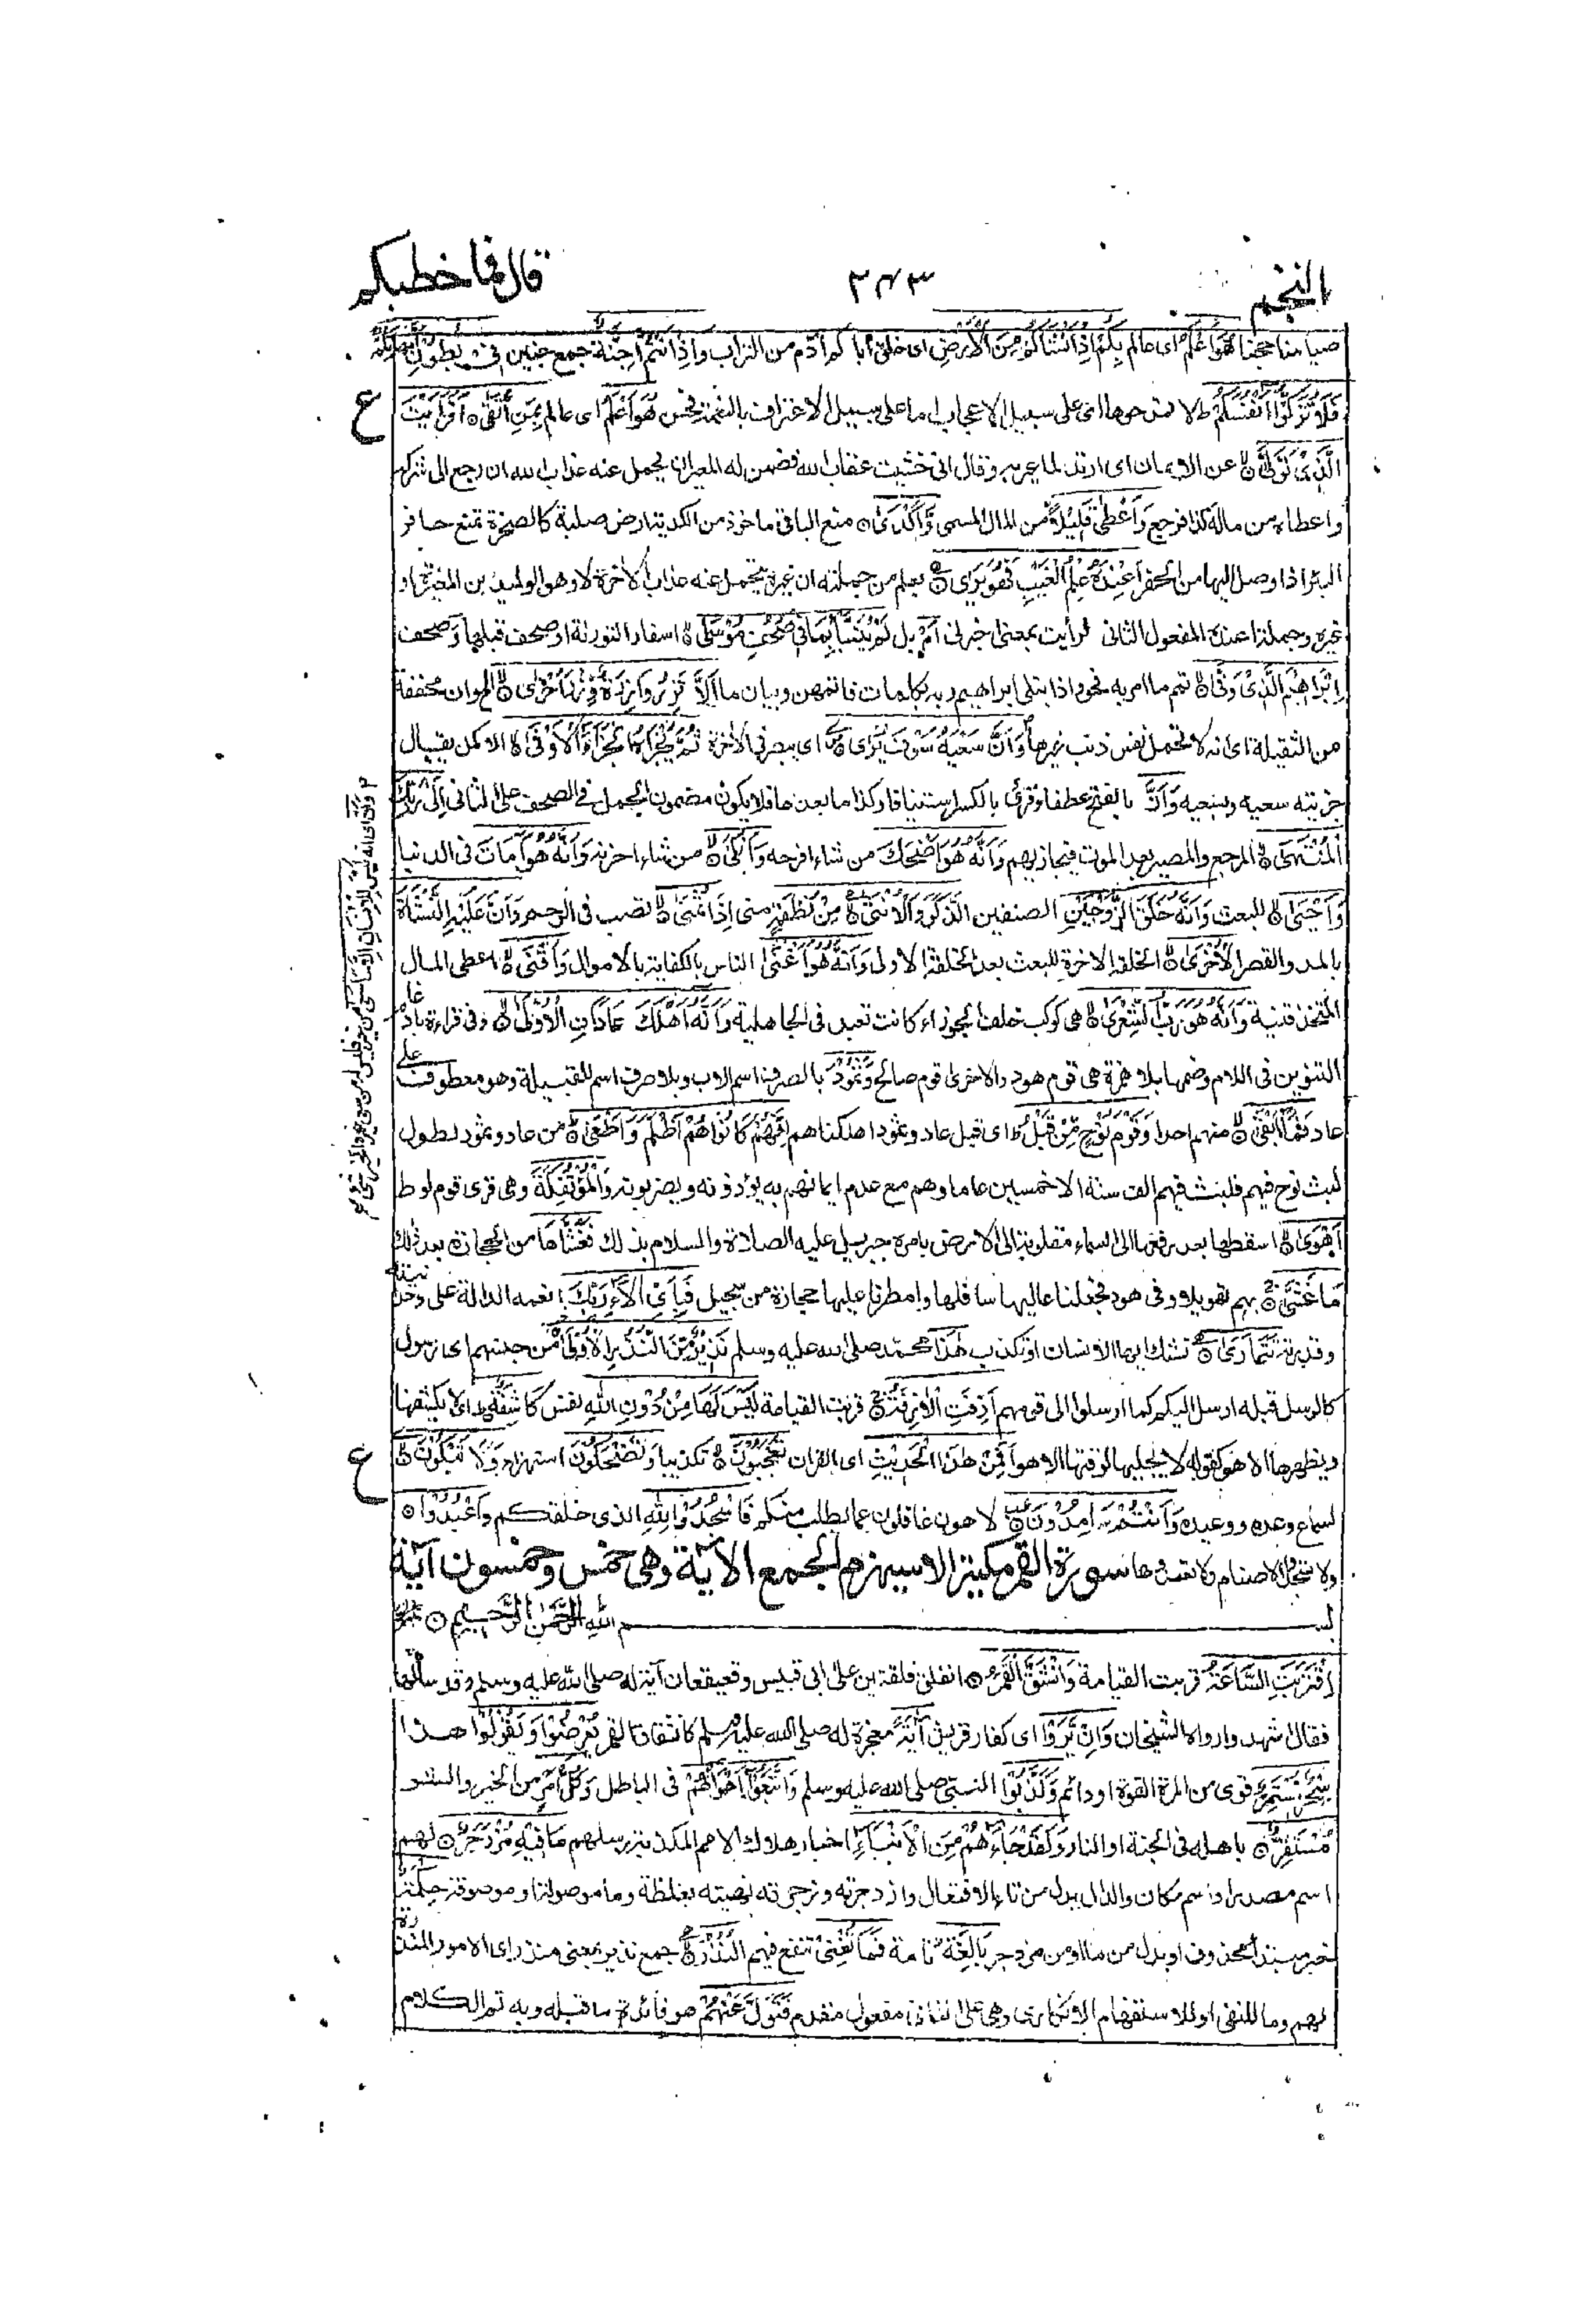 النجم
٤٤٣
قال فما خطبكم
صيامنا حجنا هُوَ أَعْلَمُ اى عالم بِكُمْ إِذْ أَنْشَأَكُمْ مِنَ الْأَرْضِ اى خلق أباكم أدم من التراب وَإِذْ أَنْتُمْ أَجِنَّةٌ جمع جنين فِي بُطُونِ أُمَّهَاتِكُمْ
فَلَا تُزَكُّوا أَنْفُسَكُمْ ط لا تمدحوها اى على سبيل الاعجاب اما على سبيل الاعتراف بالنعمة فحسن هُوَ أَعْلَمُ اى عالم بِمَنِ اتَّقَى ۝ أَفَرَأَيْتَ
ع
الَّذِي تَوَلَّى ۝ عن الايمان اى ارتد لما عير به وقال انى خشيت عقاب الله فضمن له المعير ان يحمل عنه عذاب الله ان رجع الى شركه
واعطاه من ماله كذا فرجع وَأَعْطَى قَلِيلًا من المال المسمى وَأَكْدَى ۝ منع الباقى ماخوذ من الكدية ارض صلبة كالصخرة تمنع حافر
البئر اذا وصل اليها من الحفر أَعِنْدَهُ عِلْمُ الْغَيْبِ فَهُوَ يَرَى ۝ يعلم من جملته ان غيره يتحمل عنه عذاب الأخرة لا وهو الوليد بن المغيرة او
غيره وجملة اعنده المفعول الثانى لرأيت بمعنى اخبرنى أَمْ بل لَمْ يُنَبَّأْ بِمَا فِي صُحُفِ مُوسَى ۝ اسفار التورىة او صحف قبلها وَصحف
إِبْرَاهِيمَ الَّذِي وَفَّى ۝ تمم ما امر به نحو واذ ابتلى ابراهيم ربه بكلمات فاتمهن وبيان ما أَلَّا تَزِرُ وَازِرَةٌ وِزْرَ أُخْرَى ۝ الخ وان مخففة
من الثقيلة اى انه لا تحمل نفس ذنب غيرها وَأَنَّ سَعْيَهُ سَوْفَ يُرَى ۝ اى يبصر فى الأخرة ثُمَّ يُجْزَاهُ الْجَزَاءَ الْأَوْفَى ۝ الاكمل يقال
جزيته سعيه وبسعيه وَأَنَّ بالفتح عطفا وقرئ بالكسر استينافا وكذا ما بعدها فلا يكون مضمون الجمل فى الصحف على الثانى إِلَى رَبِّكَ
الْمُنْتَهَى ۝ المرجع والمصير بعد الموت فيجازيهم وَأَنَّهُ هُوَ أَضْحَكَ من شاء افرحه وَأَبْكَى ۝ من شاء احزنه وَأَنَّهُ هُوَ أَمَاتَ فى الدنيا
وَأَحْيَى ۝ للبعث وَأَنَّهُ خَلَقَ الزَّوْجَيْنِ الصنفين الذَّكَرَ وَالْأُنْثَى ۝ مِنْ نُطْفَةٍ منى إِذَا تُمْنَى ۝ تصب فى الرحم وَأَنَّ عَلَيْهِ النَّشْأَةَ
بالمد والقصر الْأُخْرَى ۝ الخلقة الاخرة للبعث بعد الخلقة الاولى وَأَنَّهُ هُوَ أَغْنَى الناس بالكفاية بالاموال وَأَقْنَى ۝ اعطى المال
المتخذ قنية وَأَنَّهُ هُوَ رَبُّ الشِّعْرَى ۝ هى كوكب خلف الجوزاء كانت تعبد فى الجاهلية وَأَنَّهُ أَهْلَكَ عَادًا نِ الْأُولَى ۝ وفى قراءة بادغام
التنوين فى اللام وضمها بلا همزة هى قوم هود والاخرى قوم صالح وَثَمُودَ بالصرف اسم الاب وبلا صرف اسم للقبيلة وهو معطوف على
عاد فَمَا أَبْقَى ۝ منهم احدا وَقَوْمَ نُوحٍ مِنْ قَبْلُ ط اى قبل عاد وثمود اهلكناهم إِنَّهُمْ كَانُوا هُمْ أَظْلَمَ وَأَطْغَى ۝ من عاد وثمود لطول
لبث نوح فيهم فلبث فيهم الف سنة الا خمسين عاما وهم مع عدم ايمانهم به يؤذونه ويضربونه وَالْمُؤْتَفِكَةَ وهى قرى قوم لوط
أَهْوَى ۝ اسقطها بعد رفعها الى السماء مقلوبة الى الارض بامره جبريل عليه الصلاة والسلام بذلك فَغَشَّاهَا من الحجارة بعد ذلك
مَا غَشَّى ۝ بهم تهويلا وفى هود فجعلنا عاليها سافلها وامطرنا عليها حجارة من سجيل فَبِأَيِّ آلَاءِ رَبِّكَ انعمه الدالة على وحدانيته
وقدرته تَتَمَارَى ۝ تشك ايها الانسان او تكذب هَذَا محمد صلى الله عليه وسلم نَذِيرٌ مِنَ النُّذُرِ الْأُولَى من جنسهم اى رسول
كالرسل قبله ارسل اليكم كما ارسلوا الى قومهم أَزِفَتِ الْآزِفَةُ ۝ قربت القيامة لَيْسَ لَهَا مِنْ دُونِ اللَّهِ نفس كَاشِفَةٌ ط اى لا يكشفها
ويظهرها الا هو كقوله لا يجليها لوقتها الا هو أَفَمِنْ هَذَا الْحَدِيثِ اى القران تَعْجَبُونَ ۝ تكذيبا وَتَضْحَكُونَ استهزاء وَلَا تَبْكُونَ ۝
ع
لسماع وعده ووعيده وَأَنْتُمْ سَامِدُونَ ۝ لاهون غافلون عما يطلب منكم فَاسْجُدُوا لِلَّهِ الذى خلقكم وَاعْبُدُوا ۝
ولا تسجدوا للاصنام ولا تعبدوها سورة القمر مكية الا سيهزم الجمع الأية وهى خمس وخمسون آية
بسم الله الرحمن الرحيم ۝
إِقْتَرَبَتِ السَّاعَةُ قربت القيامة وَانْشَقَّ الْقَمَرُ ۝ انفلق فلقتين على ابى قبيس وقعيقعان آية له صلى الله عليه وسلم وقد سألها
فقال اشهدوا رواه الشيخان وَإِنْ يَرَوْا اى كفار قريش آيَةً معجزة له صلى الله عليه وسلم كانشقاق القمر يُعْرِضُوا وَيَقُولُوا هذا
سِحْرٌ مُسْتَمِرٌّ قوى من المرة القوة او دائم وَكَذَّبُوا النبى صلى الله عليه وسلم وَاتَّبَعُوا أَهْوَاءَهُمْ فى الباطل وَكُلُّ أَمْرٍ من الخير والشر
مُسْتَقِرٌّ ۝ باهله فى الجنة او النار وَلَقَدْ جَاءَهُمْ مِنَ الْأَنْبَاءِ اخبار هلاك الامم المكذبة رسلهم مَا فِيهِ مُزْدَجَرٌ ۝ لهم
اسم مصدر او اسم مكان والدال بدل من تاء الافتعال وازدجرته وزجرته نهيته بغلظة وما موصولة او موصوفة حِكْمَةٌ
خبر مبتدأ محذوف او بدل من ما او من مزدجر بَالِغَةٌ تامة فَمَا تُغْنِ تنفع فيهم النُّذُرُ ۝ جمع نذير بمعنى منذر اى الامور المنذرة
لهم وما للنفى او للاستفهام الانكارى وهى على الثانى مفعول مقدم فَتَوَلَّ عَنْهُمْ هو فائدة ما قبله وبه تم الكلام